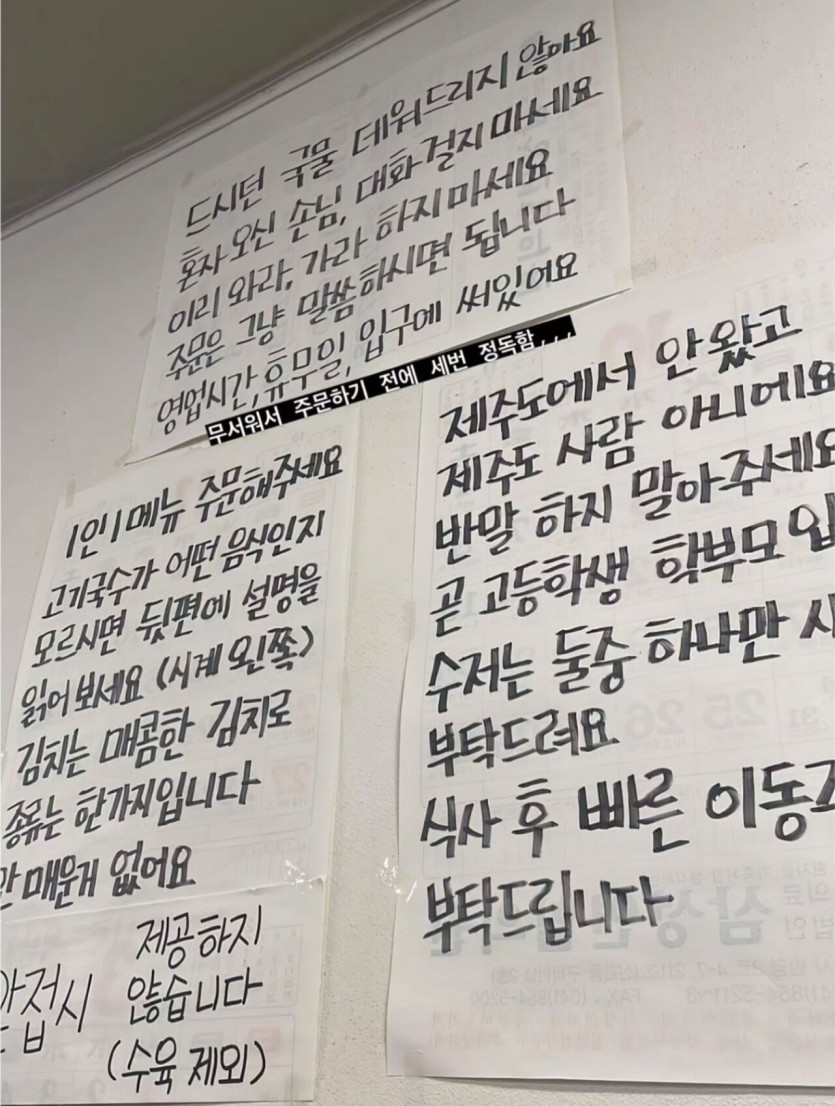 드시던 국물 데워드리지 않아요
혼자 오신 손님, 대화 걸지 마세요
이리 와라, 가라 하지 마세요
주문은 그냥 말씀하시면 됩니다
영업시간, 휴무일, 입구에 써있어요
무서워서 주문하기 전에 세번 정독함,,,
1인 1메뉴 주문해주세요
고기국수가 어떤 음식인지
모르시면 뒷편에 설명을
읽어 보세요 (시계 왼쪽)
김치는 매콤한 김치로
종류는 한가지입니다
안 매운거 없어요
앞접시 제공하지
않습니다
(수육 제외)
제주도에서 안 왔고
제주도 사람 아니에요
반말 하지 말아주세요
곧 고등학생 학부모 입
수저는 둘중 하나만 사
부탁드려요
식사 후 빠른 이동
부탁드립니다
25 26
31
27